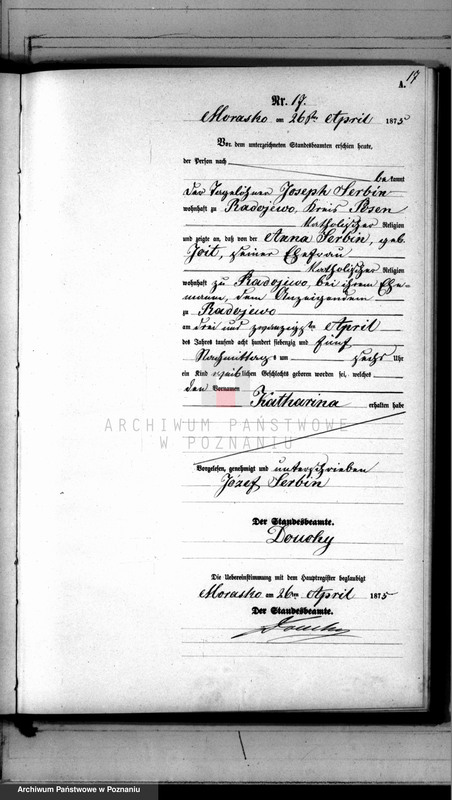 17
A.
Nr. 17.
Morasko am 26ten April 1875
Vor dem unterzeichneten Standesbeamten erschien heute,
der Person nach
bekannt
der Tagelöhner Joseph Serbin
wohnhaft zu Radojewo, Kreis Posen
katholischer Religion
und zeigte an, daß von der Anna Serbin, geb.
seiner Ehefrau
katholischer Religion
wohnhaft zu Radojewo, bei ihrem Ehe-
manne, dem Anzeigenden
zu Radojewo
am drei und zwanzigsten April
des Jahres tausend acht hundert siebenzig und fünf
Nachmittags um sechs Uhr
ein Kind weiblichen Geschlechts geboren worden sei, welches
den Vornamen
Katharina erhalten habe
ARCHIWUM PAŃSTWOWE
W POZNANIU
Vorgelesen, genehmigt und unterschrieben
Józef Serbin
Der Standesbeamte.
Douchy
Die Uebereinstimmung mit dem Hauptregister beglaubigt
Morasko am 26ten April 1875
Der Standesbeamte.
Douchy
Archiwum Państwowe w Poznaniu